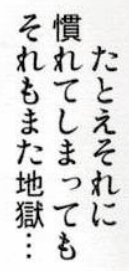 たとえそれに
慣れてしまっても
それもまた地獄…